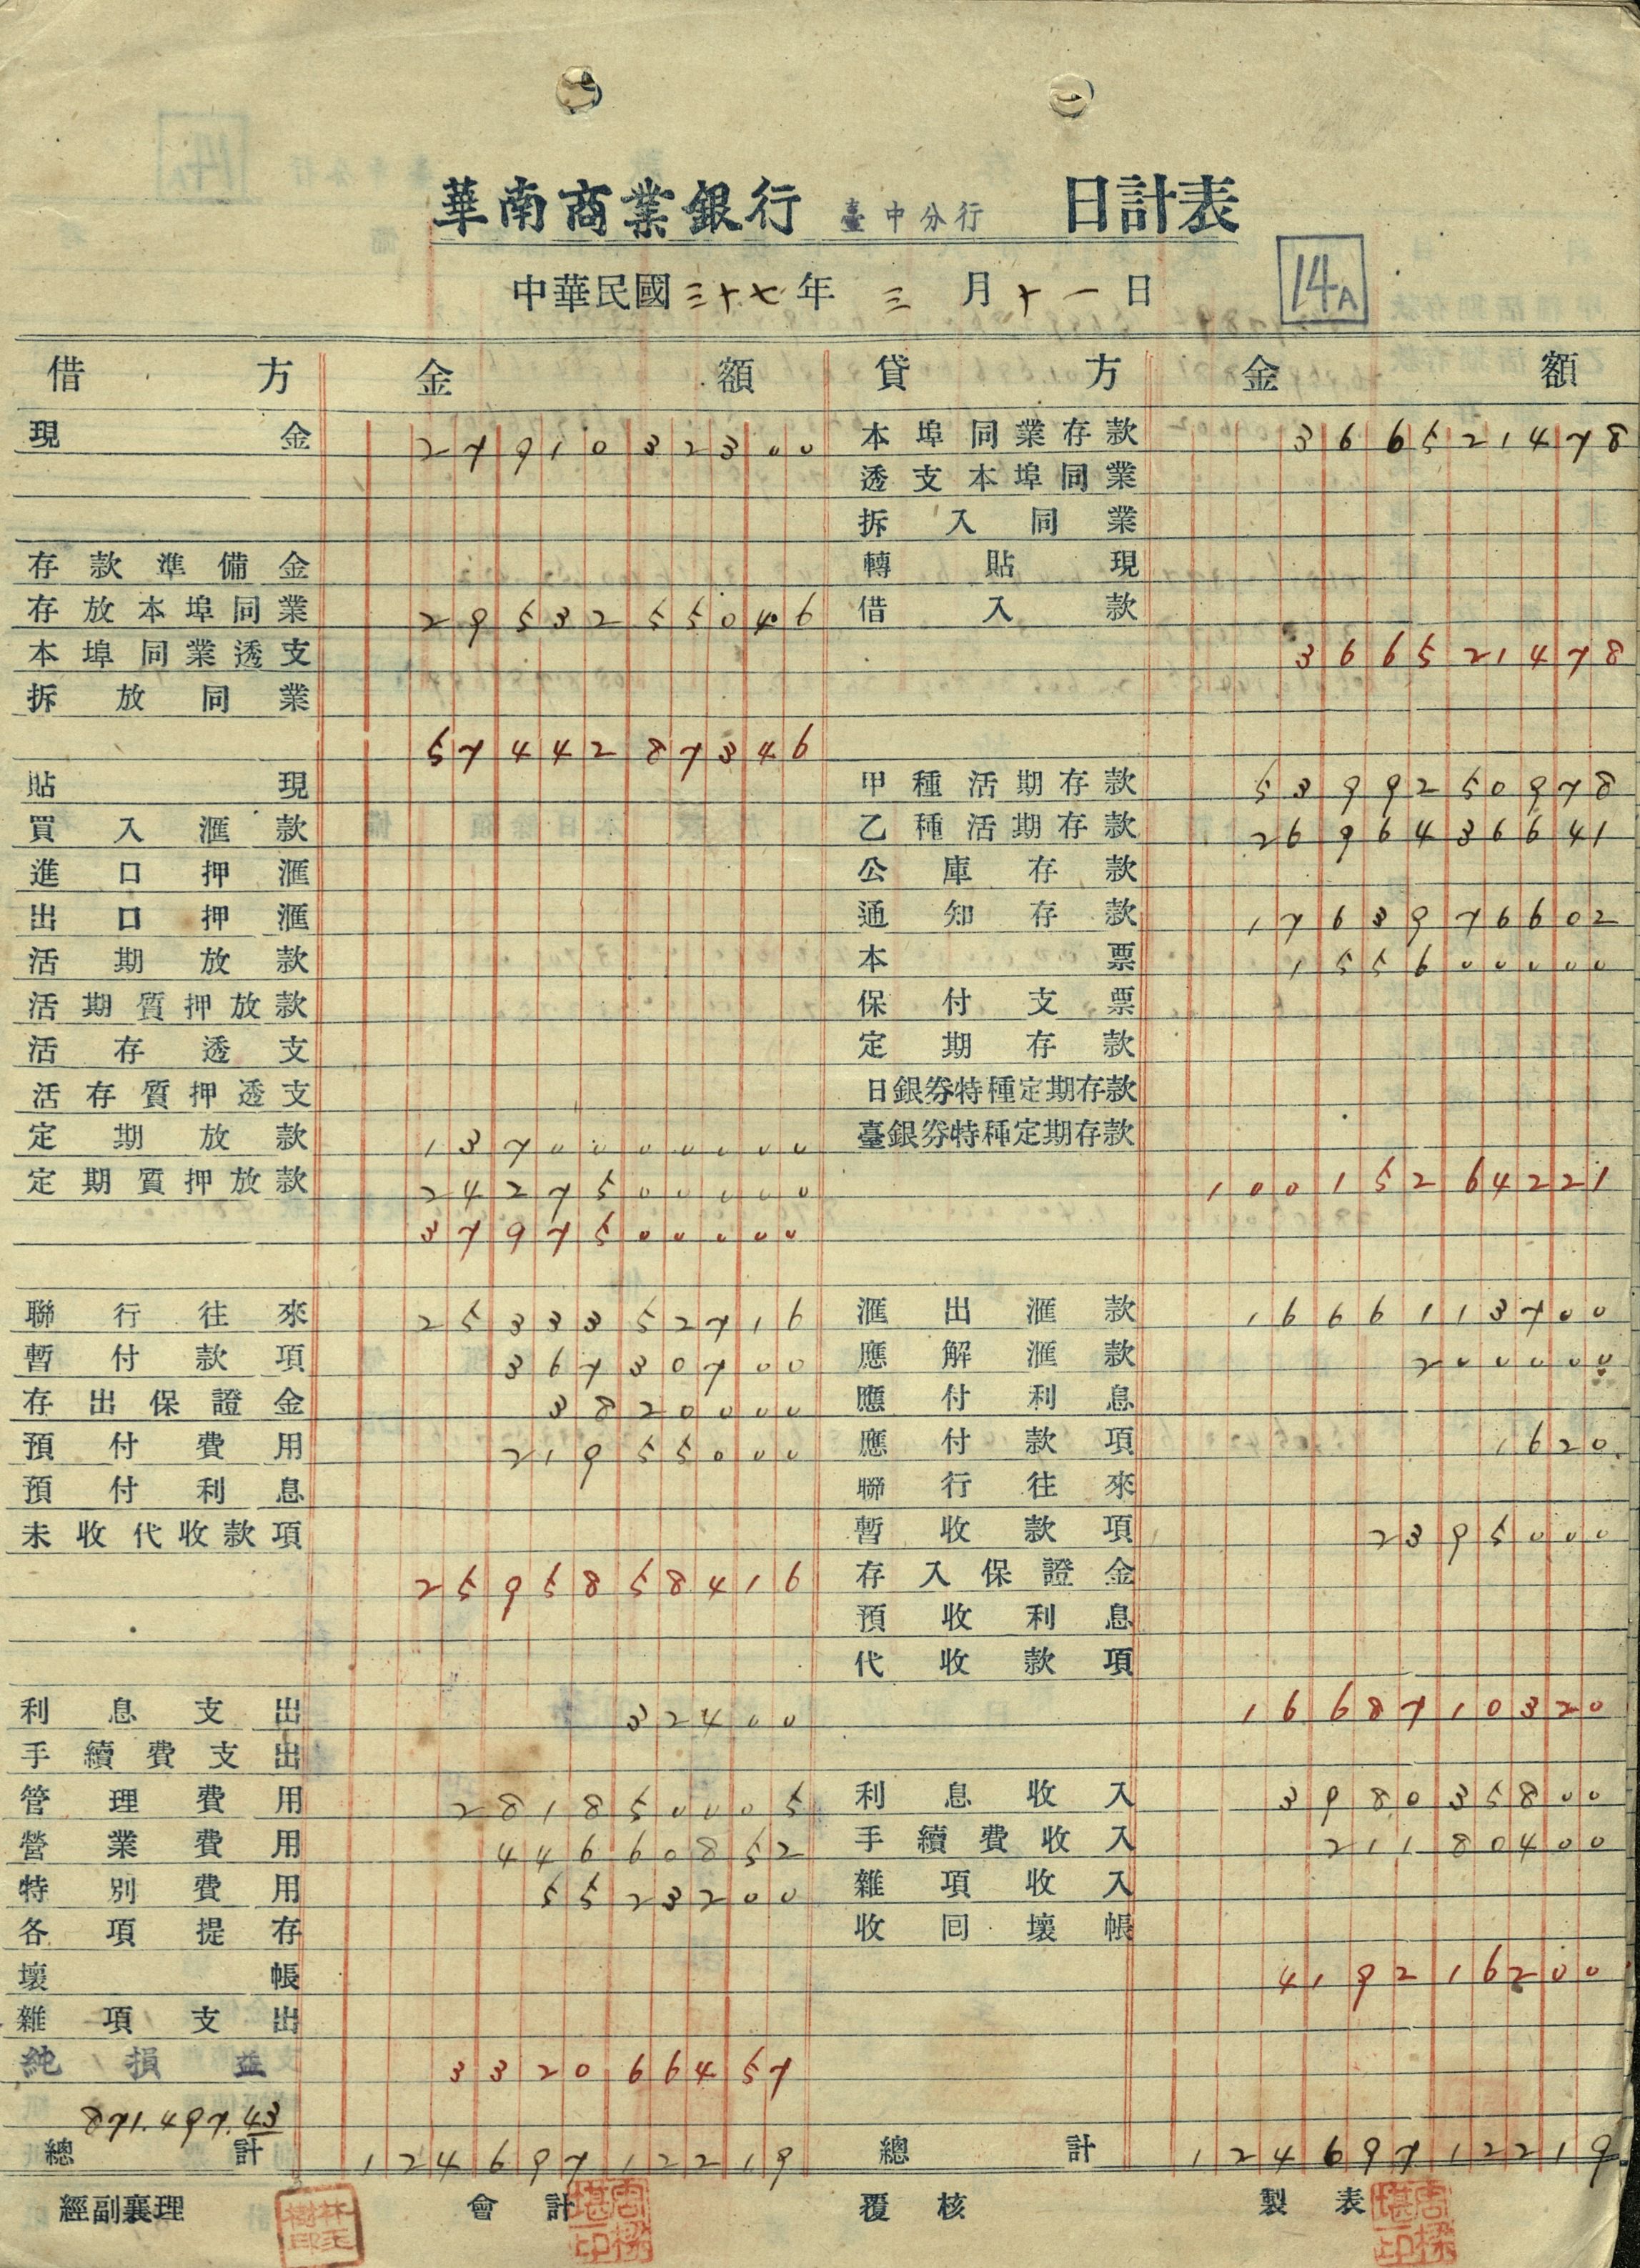 華南商業銀行 臺中分行 日計表
中華民國三十七年 三 月 十一 日
14A
借方 金額 貸方 金額
現金 2791032300 本埠同業存款 366521478
透支本埠同業
拆入同業
存款準備金 轉貼現
存放本埠同業 2953255046 借入款
本埠同業透支 366521478
拆放同業
5744287346
貼現 甲種活期存款 5399250978
買入滙款 乙種活期存款 2696436641
進口押滙 公庫存款
出口押滙 通知存款 1763976602
活期放款 本票 155600000
活期質押放款 保付支票
活存透支 定期存款
活存質押透支 日銀券特種定期存款
定期放款 1370000000 臺銀券特種定期存款
定期質押放款 2427500000 10015264221
3797500000
聯行往來 2533352716 滙出滙款 1666113700
暫付款項 36730700 應解滙款 200000
存出保證金 3820000 應付利息
預付費用 21955000 應付款項 1620
預付利息 聯行往來
未收代收款項 暫收款項 2395000
2595858416 存入保證金
預收利息
代收款項
利息支出 32400 1668710320
手續費支出
管理費用 281850005 利息收入 398035800
營業費用 44660852 手續費收入 21180400
特別費用 5523200 雜項收入
各項提存 收囘壞帳
壞帳 419216200
雜項支出
純損益 332066457
871.497.43
總計 12469712219 總計 12469712219
經副襄理 會計 覆核 製表